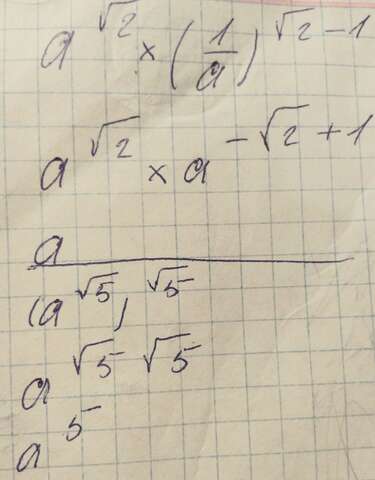 a^√2 × (1/a)^√2-1
a^√2 × a^-√2+1
a
(a^√5)^√5
a^√5 √5
a^5